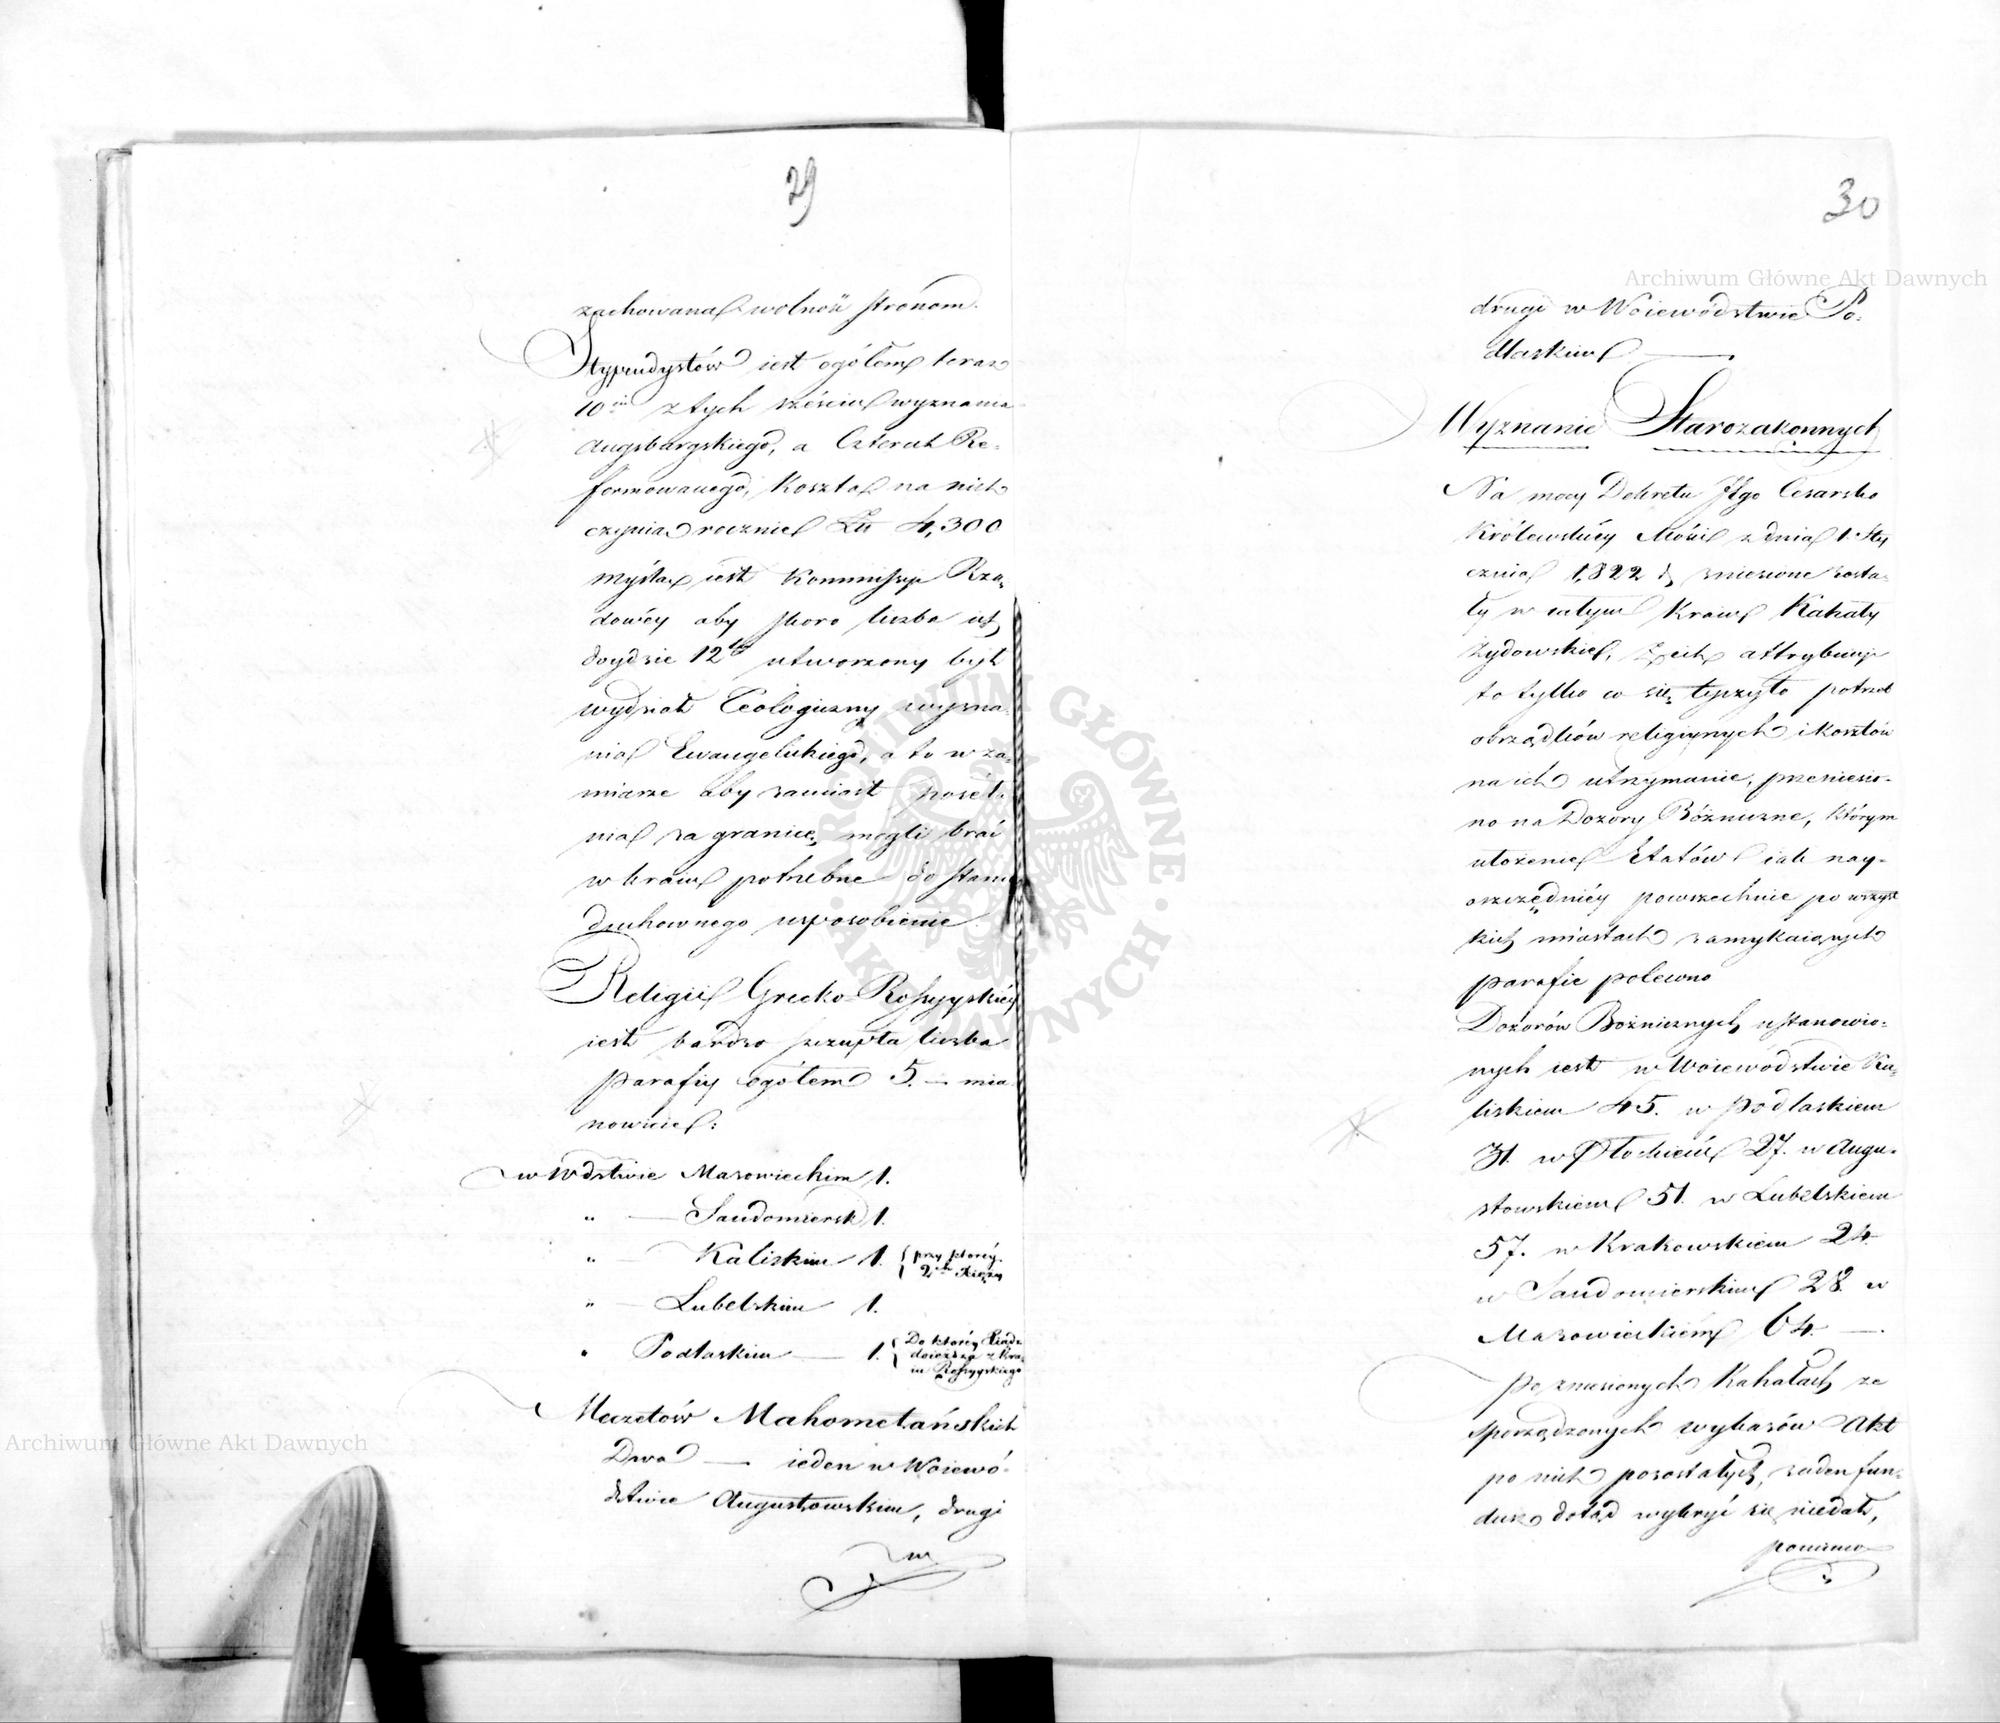 29
zachowana wolność stronom.
Stypendystów iest ogółem teraz
10iu z tych sześciu wyznania
Augsburgskiego, a Czterech Re-
formowanego, koszta na nich
czynia rocznie Zł 4,300
myślą iest Kommissyi Rzą-
dowéy aby skoro liczba ich
doydzie 12tu utworzony był
wydział Teologiczny wyzna-
nia Ewangelickiego, a to w za-
miarze aby zamiast
nia za granicę, mogli brać
w kraiu potrzebne do stanu
duchownego usposobienie.
Religii Grecko-Rossyyskiéy
iest bardzo szczupła liczba
parafiy ogółem 5. — mia-
nowicie:
w Wdztwie Mazowieckim 1.
" — Sandomiersk 1.
" — Kaliskim 1. { przy któréy 2ch Xięży
" — Lubelskim 1.
" Podlaskim — 1. { Do któréy Xiądz doieżdża z Kra- iu Rossyyskiego
Meczetów Mahometańskich
Dwa — ieden w Woiewó-
dztwie Augustowskim, drugi
w
30
drugi w Woiewództwie Po-
dlaskim —
Wyznanie Starozakonnych
Na mocy Dekretu Jego Cesarsko
Królewskiéy Mości z dnia 1. Sty
cznia 1,822 r. zniesione zosta-
ły w całym Kraiu Kahały
Żydowskie, z ich attrybucyi
to tylko co się tyczyło potrzeb
obrządków religiynych i kosztów
na ich utrzymanie, przeniesio-
no na Dozory Bóżniczne, którym
ułożenie Etatów iak nay-
oszczędniéy powszechnie po wszyst
kich miastach zamykaiących
parafie polecono
Dozorów Bożnicznych ustanowio-
nych iest w Woiewództwie Ka-
liskiem 45. w Podlaskiem
31. w Płockiem 27. w Augu-
stowskiem 51. w Lubelskiem
57. w Krakowskiem 24.
w Sandomierskiem 28. w
Mazowieckiem 64. —
Po zniesionych Kahałach ze
sporządzonych wykazów Akt
po nich pozostałych, żaden fun-
dusz dotąd wykryć się niedał,
ponieważ
Archiwum Główne Akt Dawnych
Archiwum Główne Akt Dawnych
ARCHIWUM GŁÓWNE · AKT DAWNYCH ·